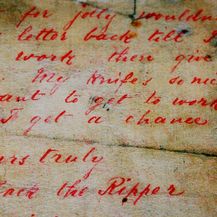 for jolly wouldn
letter back till I
work then give
My knife's so
ant to get to work
I get a chance
urs truly
Jack the Ripper